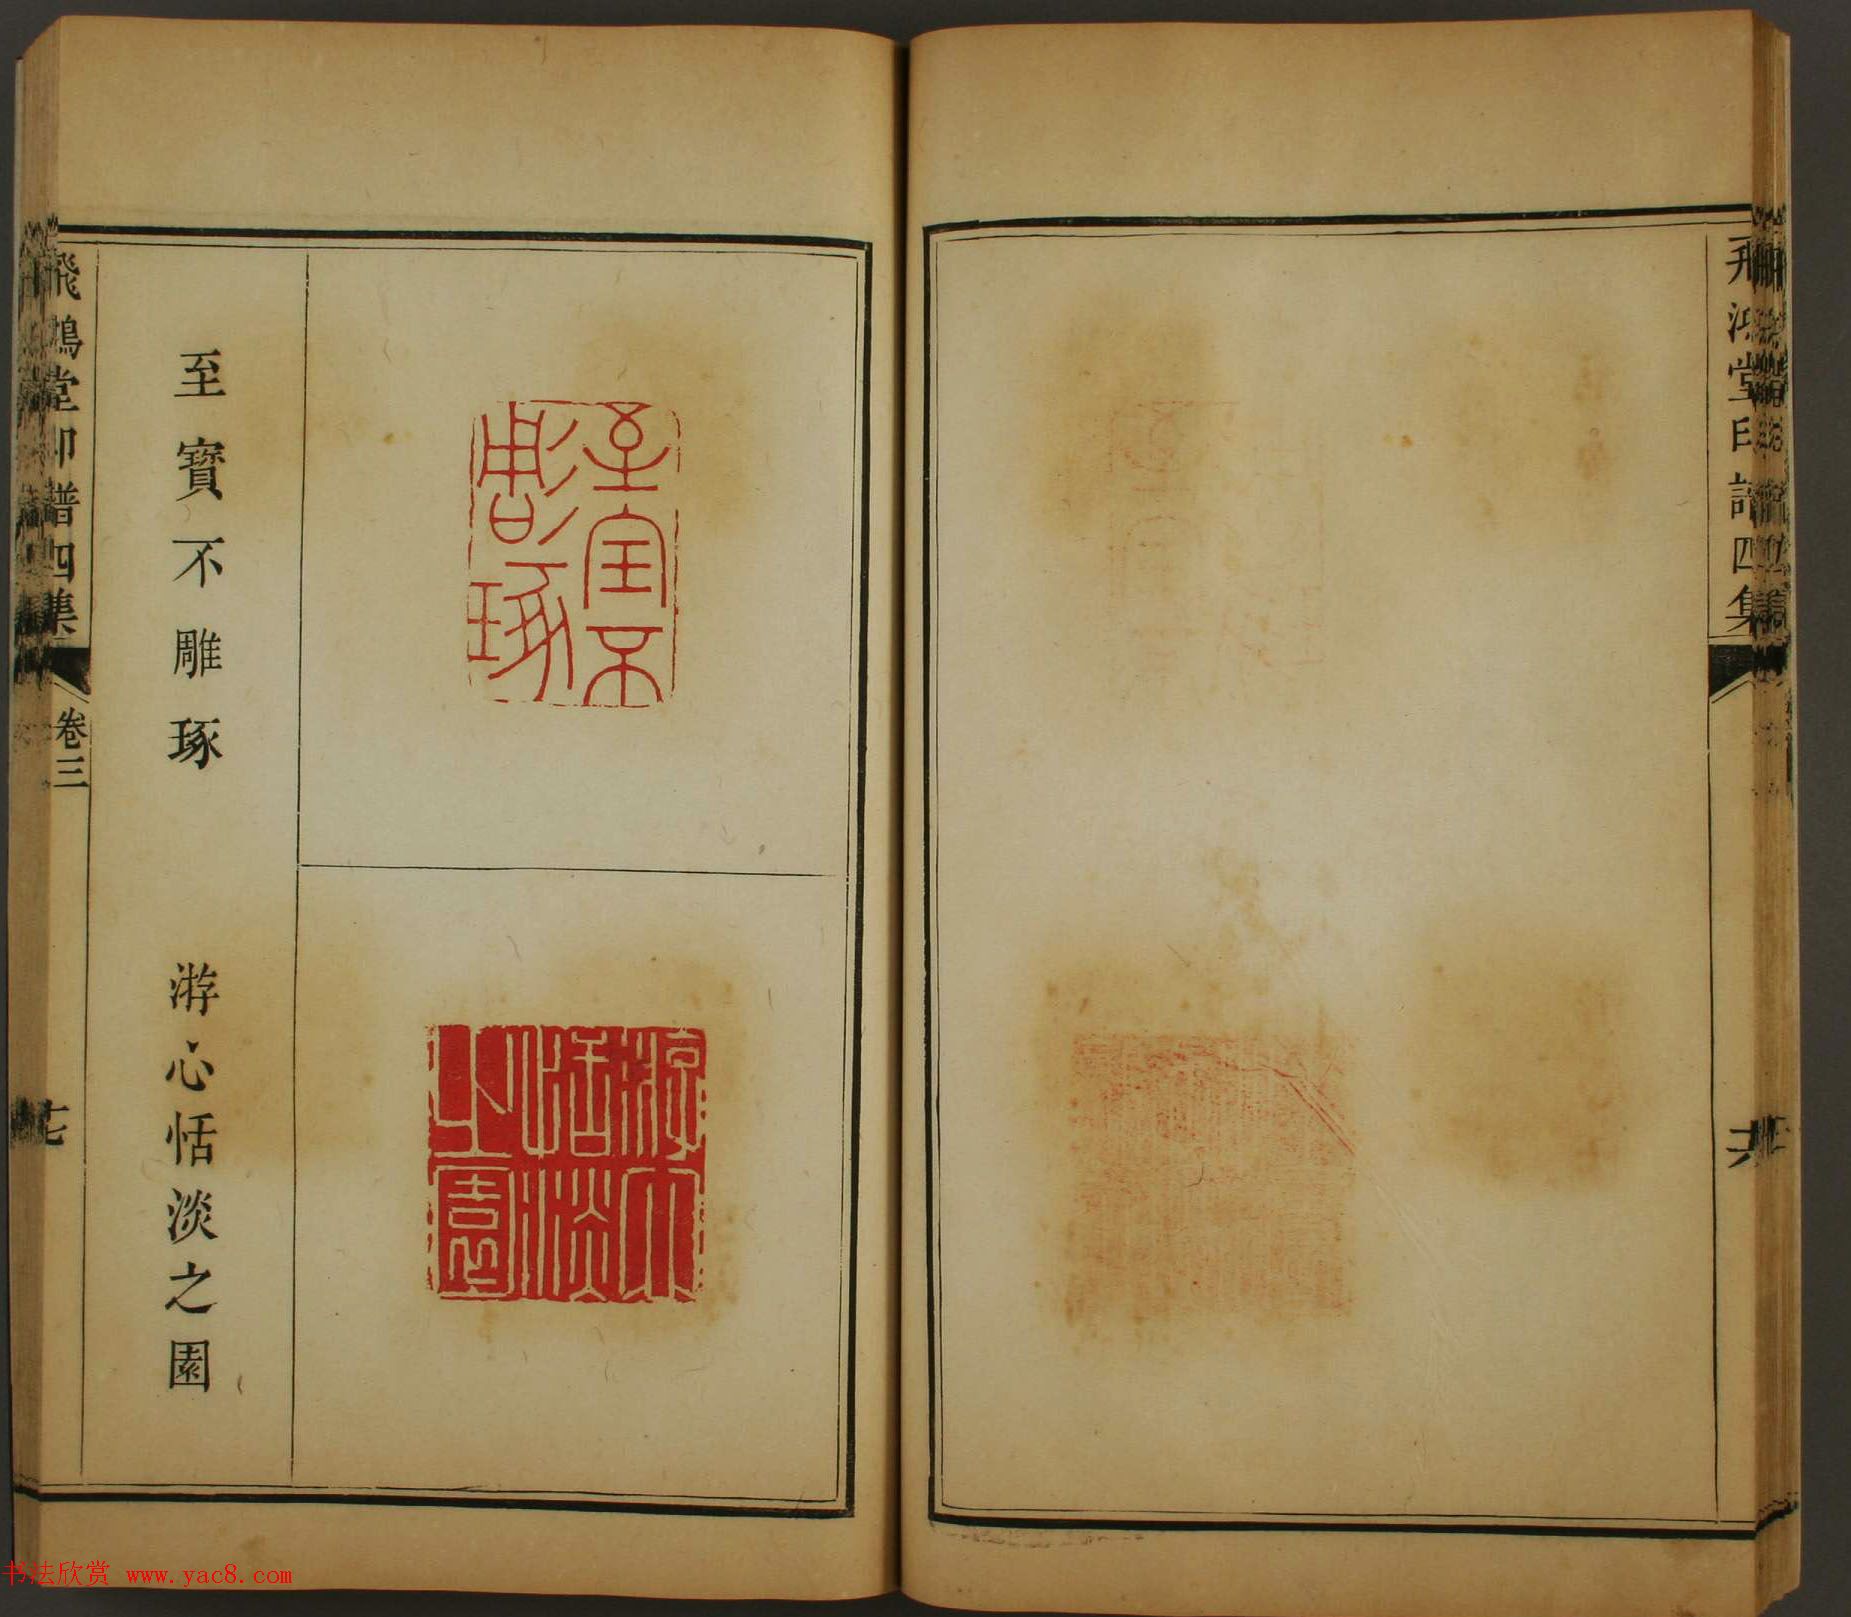 飛鴻堂印譜四集
六
至寶不雕琢
至寶不雕琢
游心恬淡之園
游心恬淡之園
飛鴻堂印譜四集
卷三
七
书法欣赏 www.yac8.com